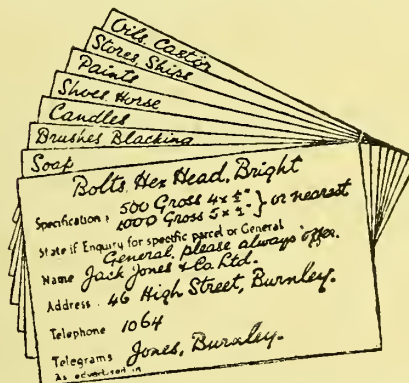 Oils, Castor
Stores, Ships
Paints
Shoes, Horse
Candles
Brushes Blacking
Soap
Bolts, Hex Head, Bright
Specification, 500 Gross 4 x ½" } or nearest
1000 Gross 5 x ½"
State if Enquiry for specific parcel or General
General, please always offer.
Name Jack Jones & Co Ltd.
Address 46 High Street, Burnley.
Telephone 1064
Telegrams Jones, Burnley.
As advertised in